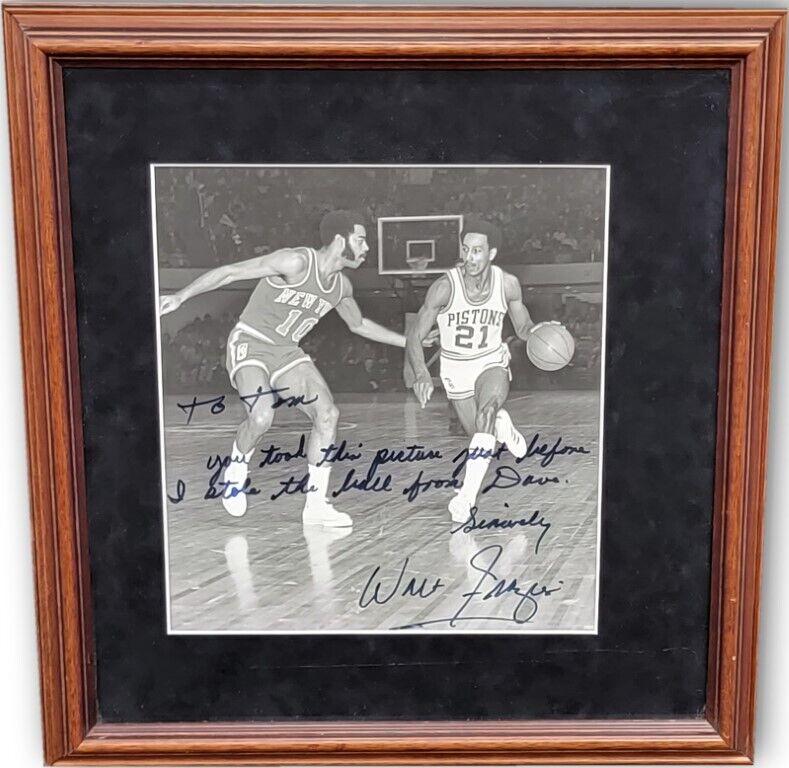 NEW Y
10
PISTONS
21
To Tom
you took this picture just before
I stole the ball from Dave.
Sincerely
Walt Frazier